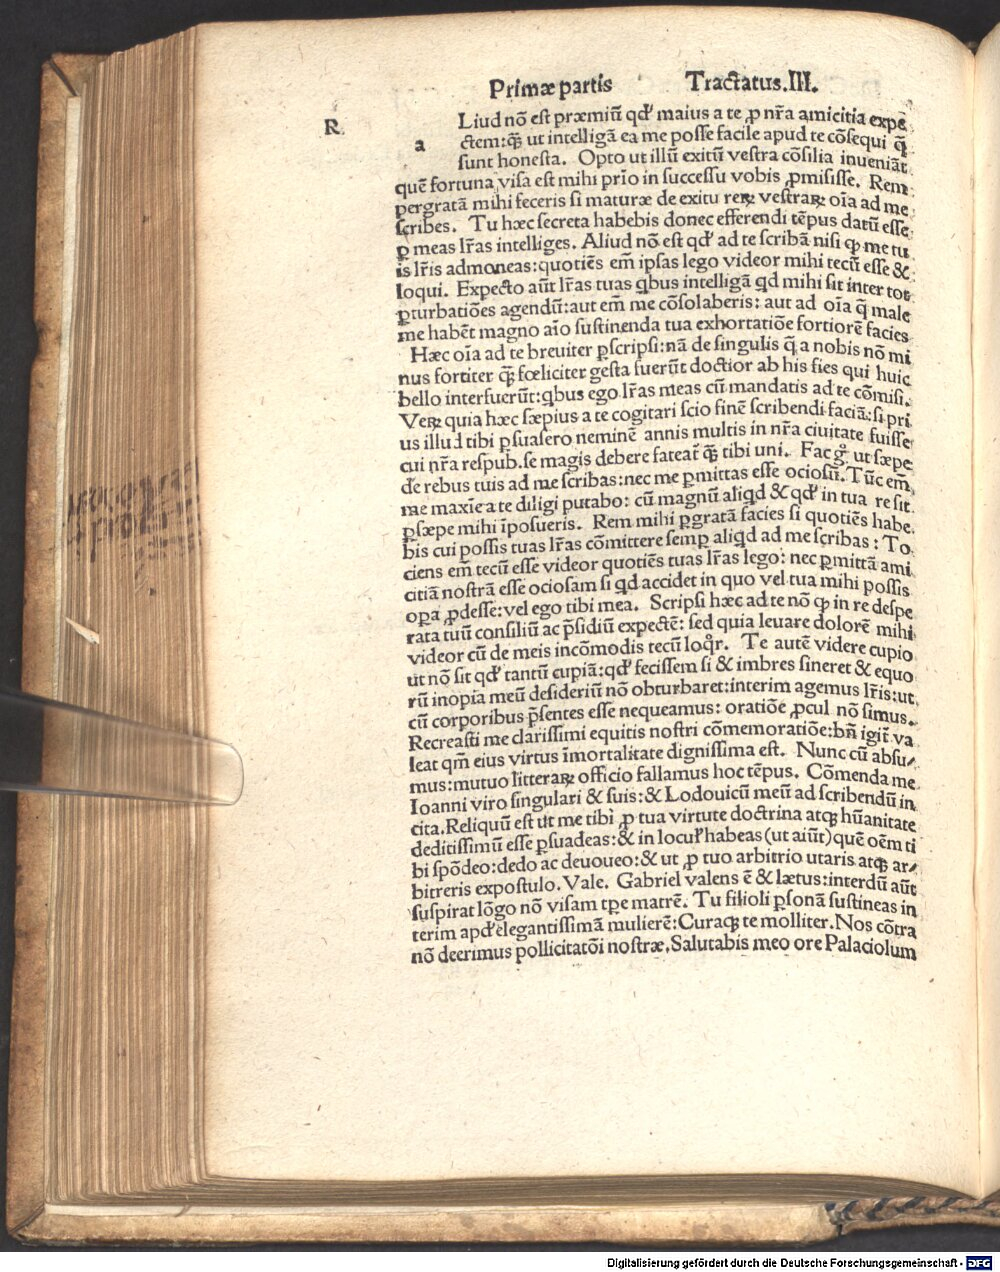 Primæ partis Tractatus.III.
R.
a
Liud nō est præmiū qđ maius a te ꝓ nr̄a amicitia expe
ctem:q̄ꝫ ut intelligā ea me posse facile apud te cōsequi q̄
sunt honesta. Opto ut illū exitū vestra cōsilia inueniāt
quē fortuna visa est mihi prīo in successu vobis ꝓmisisse. Rem
ꝑgratā mihi feceris si maturæ de exitu reꝝ vestraꝝ oīa ad me
scribes. Tu hæc secreta habebis donec efferendi tēpus datū esse
ꝑ meas lr̄as intelliges. Aliud nō est qđ ad te scribā nisi ꝙ me tu
is lr̄is admoneas:quotiēs em̄ ipsas lego videor mihi tecū esse &
loqui. Expecto aūt lr̄as tuas qbus intelligā qd mihi sit inter tot
ꝑturbatiōes agendū:aut em̄ me cōsolaberis: aut ad oīa q̄ male
me habēt magno aīo sustinenda tua exhortatiōe fortiorē facies
Hæc oīa ad te breuiter ꝑscripsi:nā de singulis q̄ a nobis nō mi
nus fortiter q̄ꝫ fœliciter gesta fuerūt doctior ab his fies qui huic
bello interfuerūt:qbus ego lr̄as meas cū mandatis ad te cōmisi.
Veꝝ quia hæc sæpius a te cogitari scio finē scribendi faciā:si pri
us illud tibi ꝑsuasero neminē annis multis in nr̄a ciuitate fuisse
cui nr̄a respub.se magis debere fateat̄ q̄ꝫ tibi uni. Fac gͦ ut sæpe
de rebus tuis ad me scribas:nec me ꝑmittas esse ociosū. Tūc em̄
me maxīe a te diligi putabo: cū magnū aliqd & qđ in tua re sit
ꝑsæpe mihi īposueris. Rem mihi ꝑgratā facies si quotiēs habe
bis cui possis tuas lr̄as cōmittere semꝑ aliqd ad me scribas: To
ciens em̄ tecū esse videor quotiēs tuas lr̄as lego: nec ꝑmittā ami
citiā nostrā esse ociosam si qd accidet in quo vel tua mihi possis
oꝑa ꝓdesse:vel ego tibi mea. Scripsi hæc ad te nō ꝙ in re despe
rata tuū consiliū ac p̄sidiū expectē: sed quia leuare dolorē mihi
videor cū de meis incōmodis tecū loqͦr. Te autē videre cupio
ut nō sit qđ tantū cupiā:qđ fecissem si & imbres sineret & equo
rū inopia meū desideriū nō obturbaret:interim agemus lr̄is:ut
cū corporibus p̄sentes esse nequeamus: oratiōe ꝓcul nō simus.
Recreasti me clarissimi equitis nostri cōmemoratiōe:bn̄ igit̄ va
leat qm̄ eius virtus īmortalitate dignissima est. Nunc cū absu⸗
mus:mutuo litteraꝝ officio fallamus hoc tēpus. Cōmenda me
Ioanni viro singulari & suis:& Lodouicū meū ad scribendū in
cita.Reliquū est ut me tibi ꝓ tua virtute doctrina atqꝫ hūanitate
deditissimū esse ꝑsuadeas:& in locuꝉ habeas (ut aiūt) quē oēm ti
bi spōdeo:dedo ac deuoueo:& ut ꝓ tuo arbitrio utaris atqꝫ ar⸗
bitreris expostulo. Vale. Gabriel valens ē & lætus:interdū aūt
suspirat lōgo nō visam tꝑe matrē. Tu filioli ꝑsonā sustineas in
terim apđ elegantissimā mulierē:Curaqꝫ te molliter. Nos cōtra
nō deerimus pollicitatōi nostræ. Salutabis meo ore Palaciolum
Digitalisierung gefördert durch die Deutsche Forschungsgemeinschaft - DFG